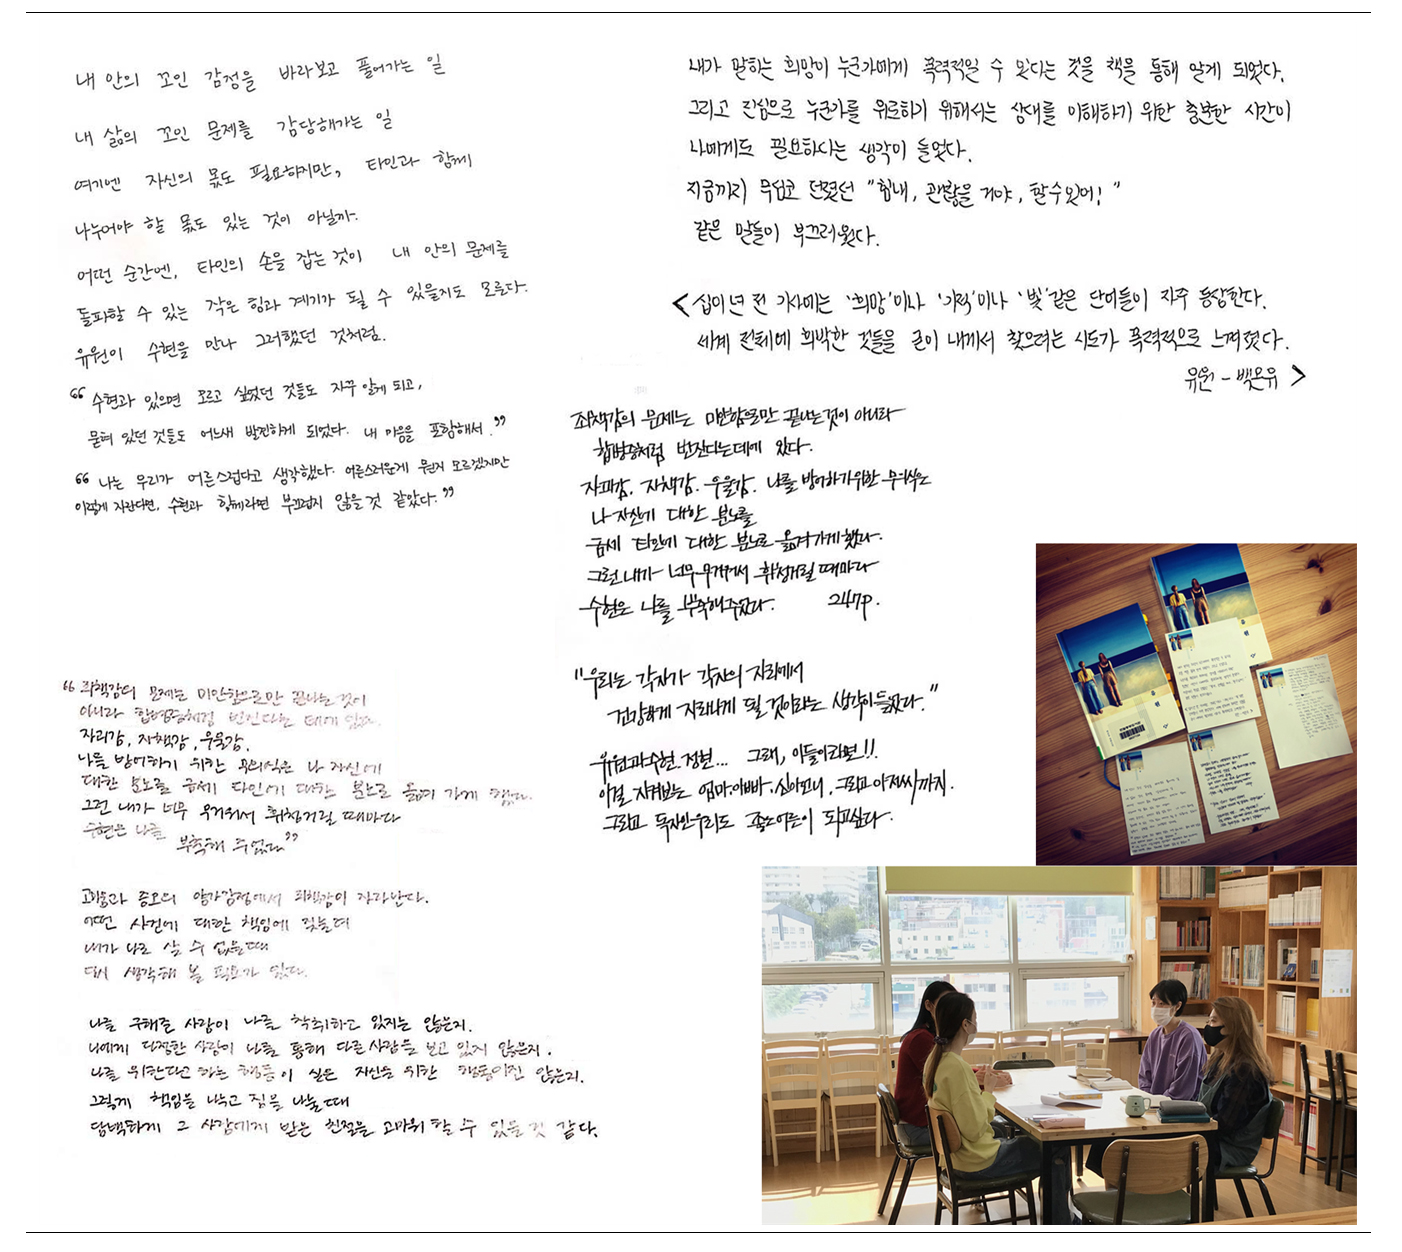 내 안의 꼬인 감정을 바라보고 풀어가는 일
내 삶의 꼬인 문제를 감당해가는 일
여기엔 자신의 몫도 필요하지만, 타인과 함께
나누어야 할 몫도 있는 것이 아닐까.
어떤 순간엔, 타인의 손을 잡는 것이 내 안의 문제를
돌파할 수 있는 작은 힘과 계기가 될 수 있을지도 모른다.
유원이 수현을 만나 그러했던 것처럼.
“수현과 있으면 모르고 싶었던 것들도 자꾸 알게 되고,
묻혀 있던 것들도 어느새 발견하게 되었다. 내 마음을 포함해서.”
“나는 우리가 어른스럽다고 생각했다. 어른스러운게 뭔지 모르겠지만
이렇게 자란다면, 수현과 함께라면 부끄럽지 않을 것 같았다.”
내가 말하는 희망이 누군가에게 폭력적일 수 있다는 것을 책을 통해 알게 되었다.
그리고 진심으로 누군가를 위로하기 위해서는 상대를 이해하기 위한 충분한 시간이
나에게도 필요하다는 생각이 들었다.
지금까지 무심코 던졌던 "힘내, 괜찮을 거야, 할 수 있어!"
같은 말들이 부끄러웠다.
<십이 년 전 기사에는 '희망'이나 '기적'이나 '빛' 같은 단어들이 자주 등장한다.
세계 전체에 희박한 것들을 굳이 내게서 찾으려는 시도가 폭력적으로 느껴졌다.
유원 - 백온유>
죄책감의 문제는 미안함으로만 끝나는 것이 아니라
합병증처럼 번진다는 데에 있다.
자괴감, 자책감, 우울감. 나를 방어하기 위한 무의식은
나 자신에 대한 분노를
금세 타인에 대한 분노로 옮겨가게 했다.
그런 내가 너무 무거워서 휘청거릴 때마다
수현은 나를 부축해주었다. 247p.
"우리는 각자가 각자의 자리에서
건강하게 자라나게 될 것이라는 생각이 들었다."
유원과 수현. 정현... 그래, 이들이라면!!
이걸 지켜보는 엄마.아빠.신아언니, 그리고 아저씨까지.
그리고 독자인 우리도 좋은 어른이 되고싶다.
“죄책감의 문제는 미안함으로만 끝나는 것이
아니라 합병증처럼 번진다는 데에 있다.
자괴감, 자책감, 우울감.
나를 방어하기 위한 무의식은 나 자신에
대한 분노를 금세 타인에 대한 분노로 옮겨 가게 했다.
그런 내가 너무 무거워서 휘청거릴 때마다
수현은 나를
부축해 주었다”
고마움과 증오의 양가감정에서 죄책감이 자라난다.
어떤 사건에 대한 책임에 짓눌려
내가 나로 살 수 없을 때
다시 생각해 볼 필요가 있다.
나를 구해준 사람이 나를 착취하고 있지는 않은지.
나에게 다정한 사람이 나를 통해 다른 사람을 보고 있지 않은지.
나를 위한다고 하는 행동이 실은 자신을 위한 행동이진 않은지.
그렇게 책임을 나누고 짐을 나눌 때
담백하게 그 사람에게 받은 친절을 고마워 할 수 있을 것 같다.